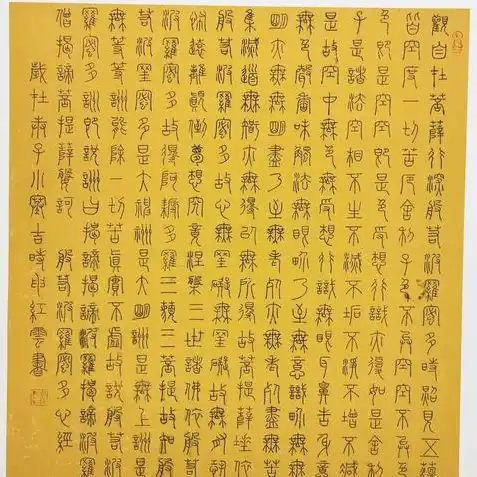 觀自在菩薩行深般若波羅蜜多時照見五蘊
皆空度一切苦厄舍利子色不異空空不異色
色即是空空即是色受想行識亦復如是舍利
子是諸法空相不生不滅不垢不淨不增不減
是故空中無色無受想行識無眼耳鼻舌身意
無色聲香味觸法無眼界乃至無意識界無無
明亦無無明盡乃至無老死亦無老死盡無苦
集滅道無智亦無得以無所得故菩提薩埵依
般若波羅蜜多故心無罣礙無罣礙故無有恐
怖遠離顛倒夢想究竟涅槃三世諸佛依般若
波羅蜜多故得阿耨多羅三藐三菩提故知般
若波羅蜜多是大神咒是大明咒是無上咒是
無等等咒能除一切苦真實不虛故說般若波
羅蜜多咒即說咒曰揭諦揭諦波羅揭諦波羅
僧揭諦菩提薩婆訶 般若波羅蜜多心經
歲在子小吉時紅雲書